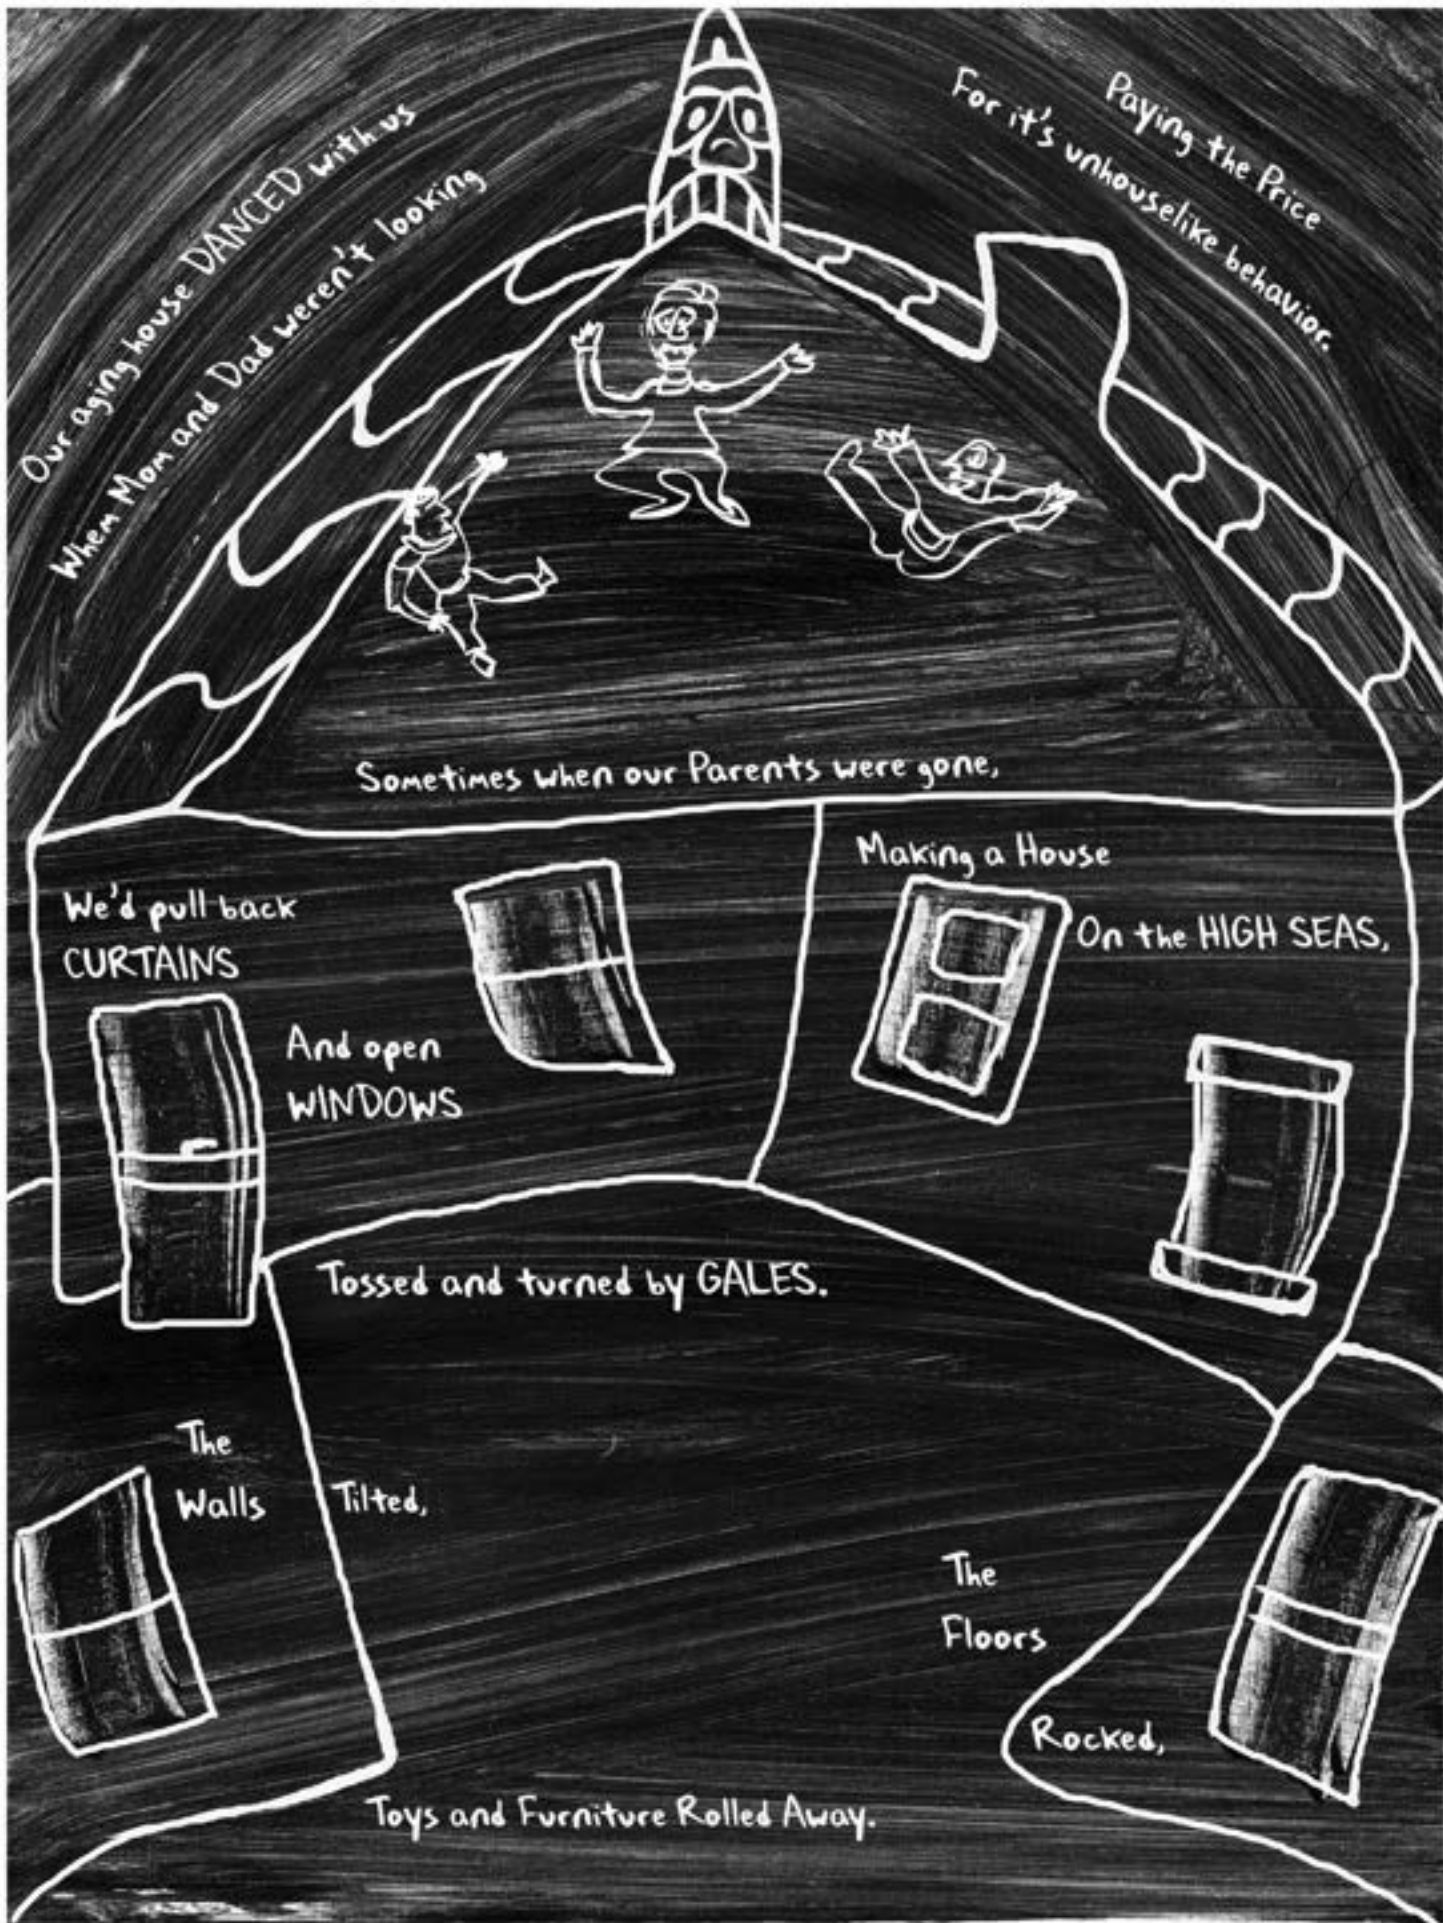 Our aging house DANCED with us
When Mom and Dad weren't looking
Paying the Price
For it's unhouselike behavior.
Sometimes when our Parents were gone,
We'd pull back
CURTAINS
And open
WINDOWS
Making a House
On the HIGH SEAS,
Tossed and turned by GALES.
The
Walls
Tilted,
The
Floors
Rocked,
Toys and Furniture Rolled Away.